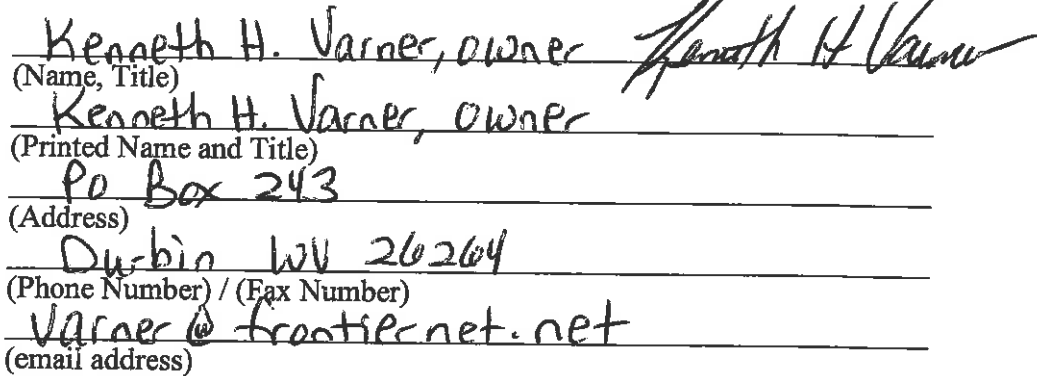 Kenneth H. Varner, owner Kenneth H Varner
(Name, Title)
Kenneth H. Varner, owner
(Printed Name and Title)
PO Box 243
(Address)
Durbin WV 26264
(Phone Number) / (Fax Number)
Varner@frontiernet.net
(email address)